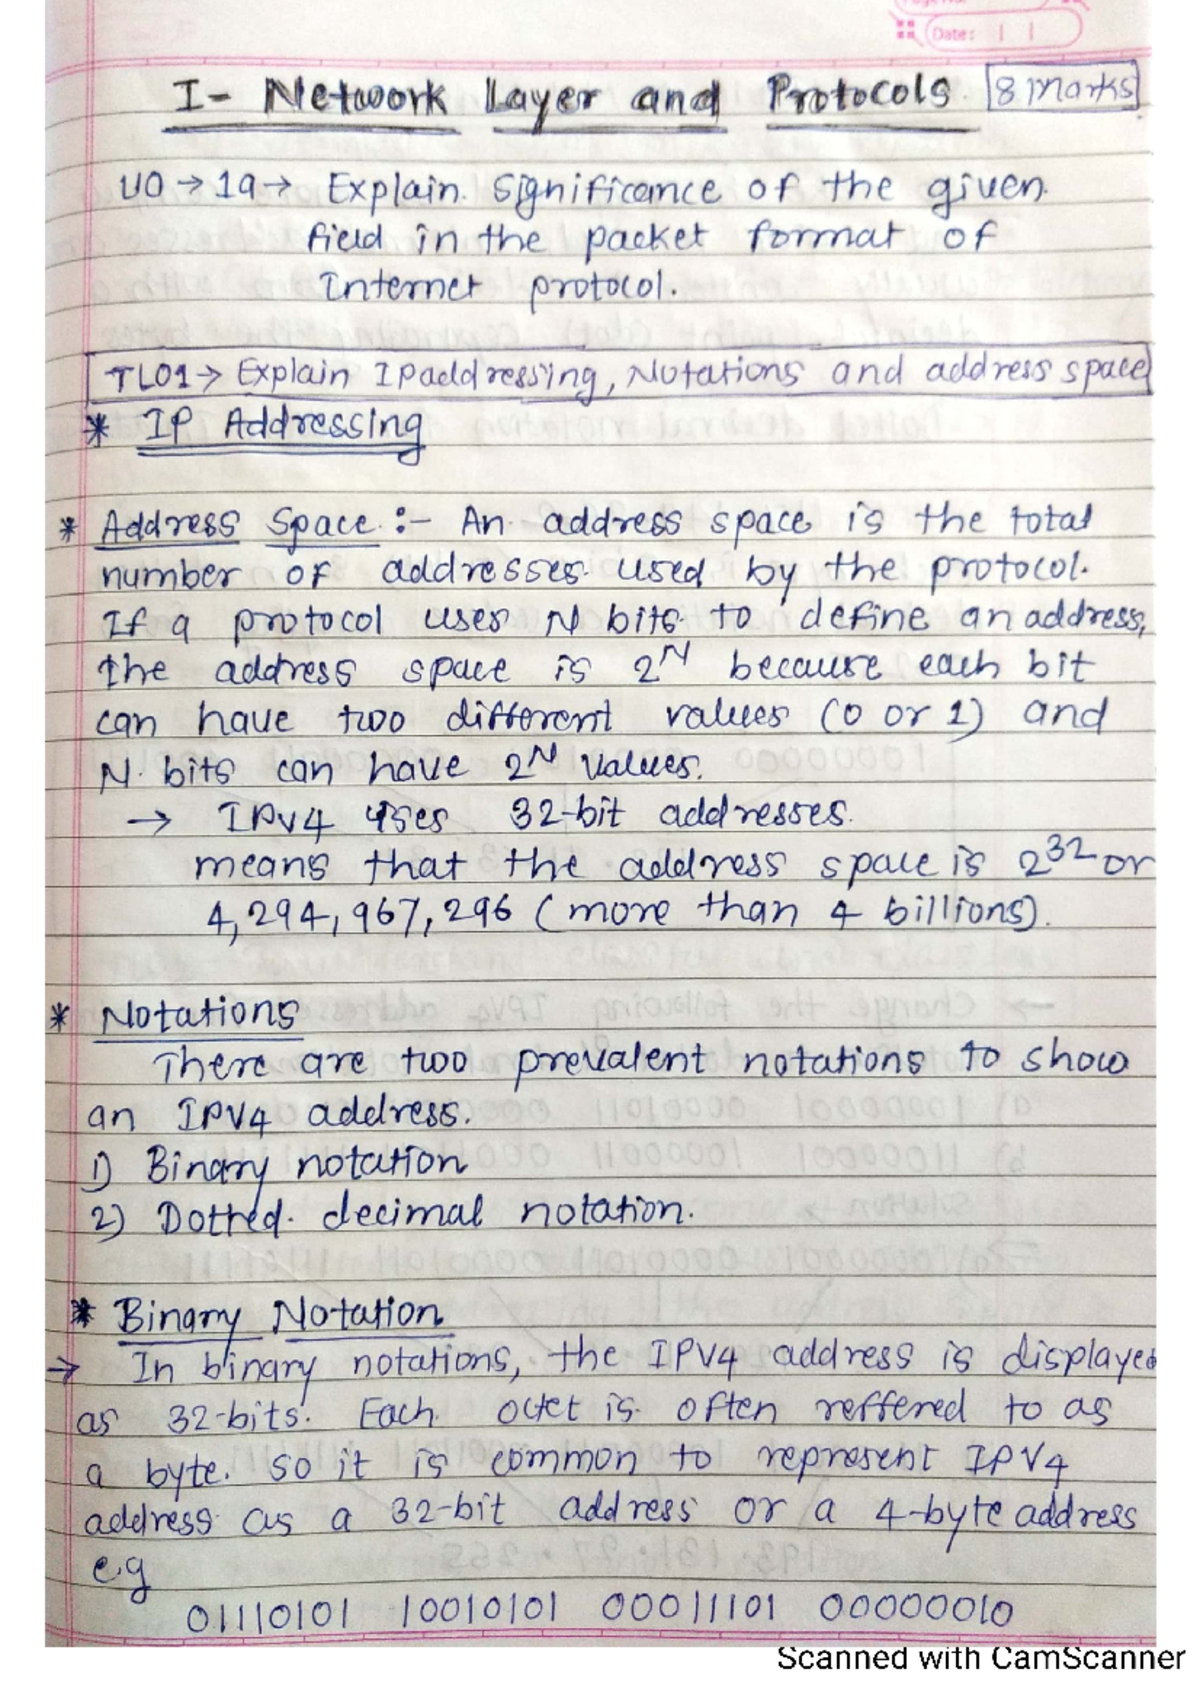 Date:
I- Network Layer and Protocols 8 Marks
UO → 1a → Explain Significance of the given
field in the packet format of
Internet protocol.
TLO1 → Explain IP addressing, Notations and address space
* IP Addressing
* Address Space :- An address space is the total
number of addresses used by the protocol.
If a protocol uses N bits to define an address,
the address space is 2^N because each bit
can have two different values (0 or 1) and
N bits can have 2^N values.
→ IPV4 uses 32-bit addresses.
means that the address space is 2^32 or
4,294,967,296 (more than 4 billions).
* Notations
There are two prevalent notations to show
an IPV4 address.
1) Binary notation
2) Dotted decimal notation.
* Binary Notation
→ In binary notations, the IPV4 address is displayed
as 32-bits. Each octet is often reffered to as
a byte. so it is common to represent IPV4
address as a 32-bit address or a 4-byte address
e.g
01110101 10010101 00011101 00000010
Scanned with CamScanner